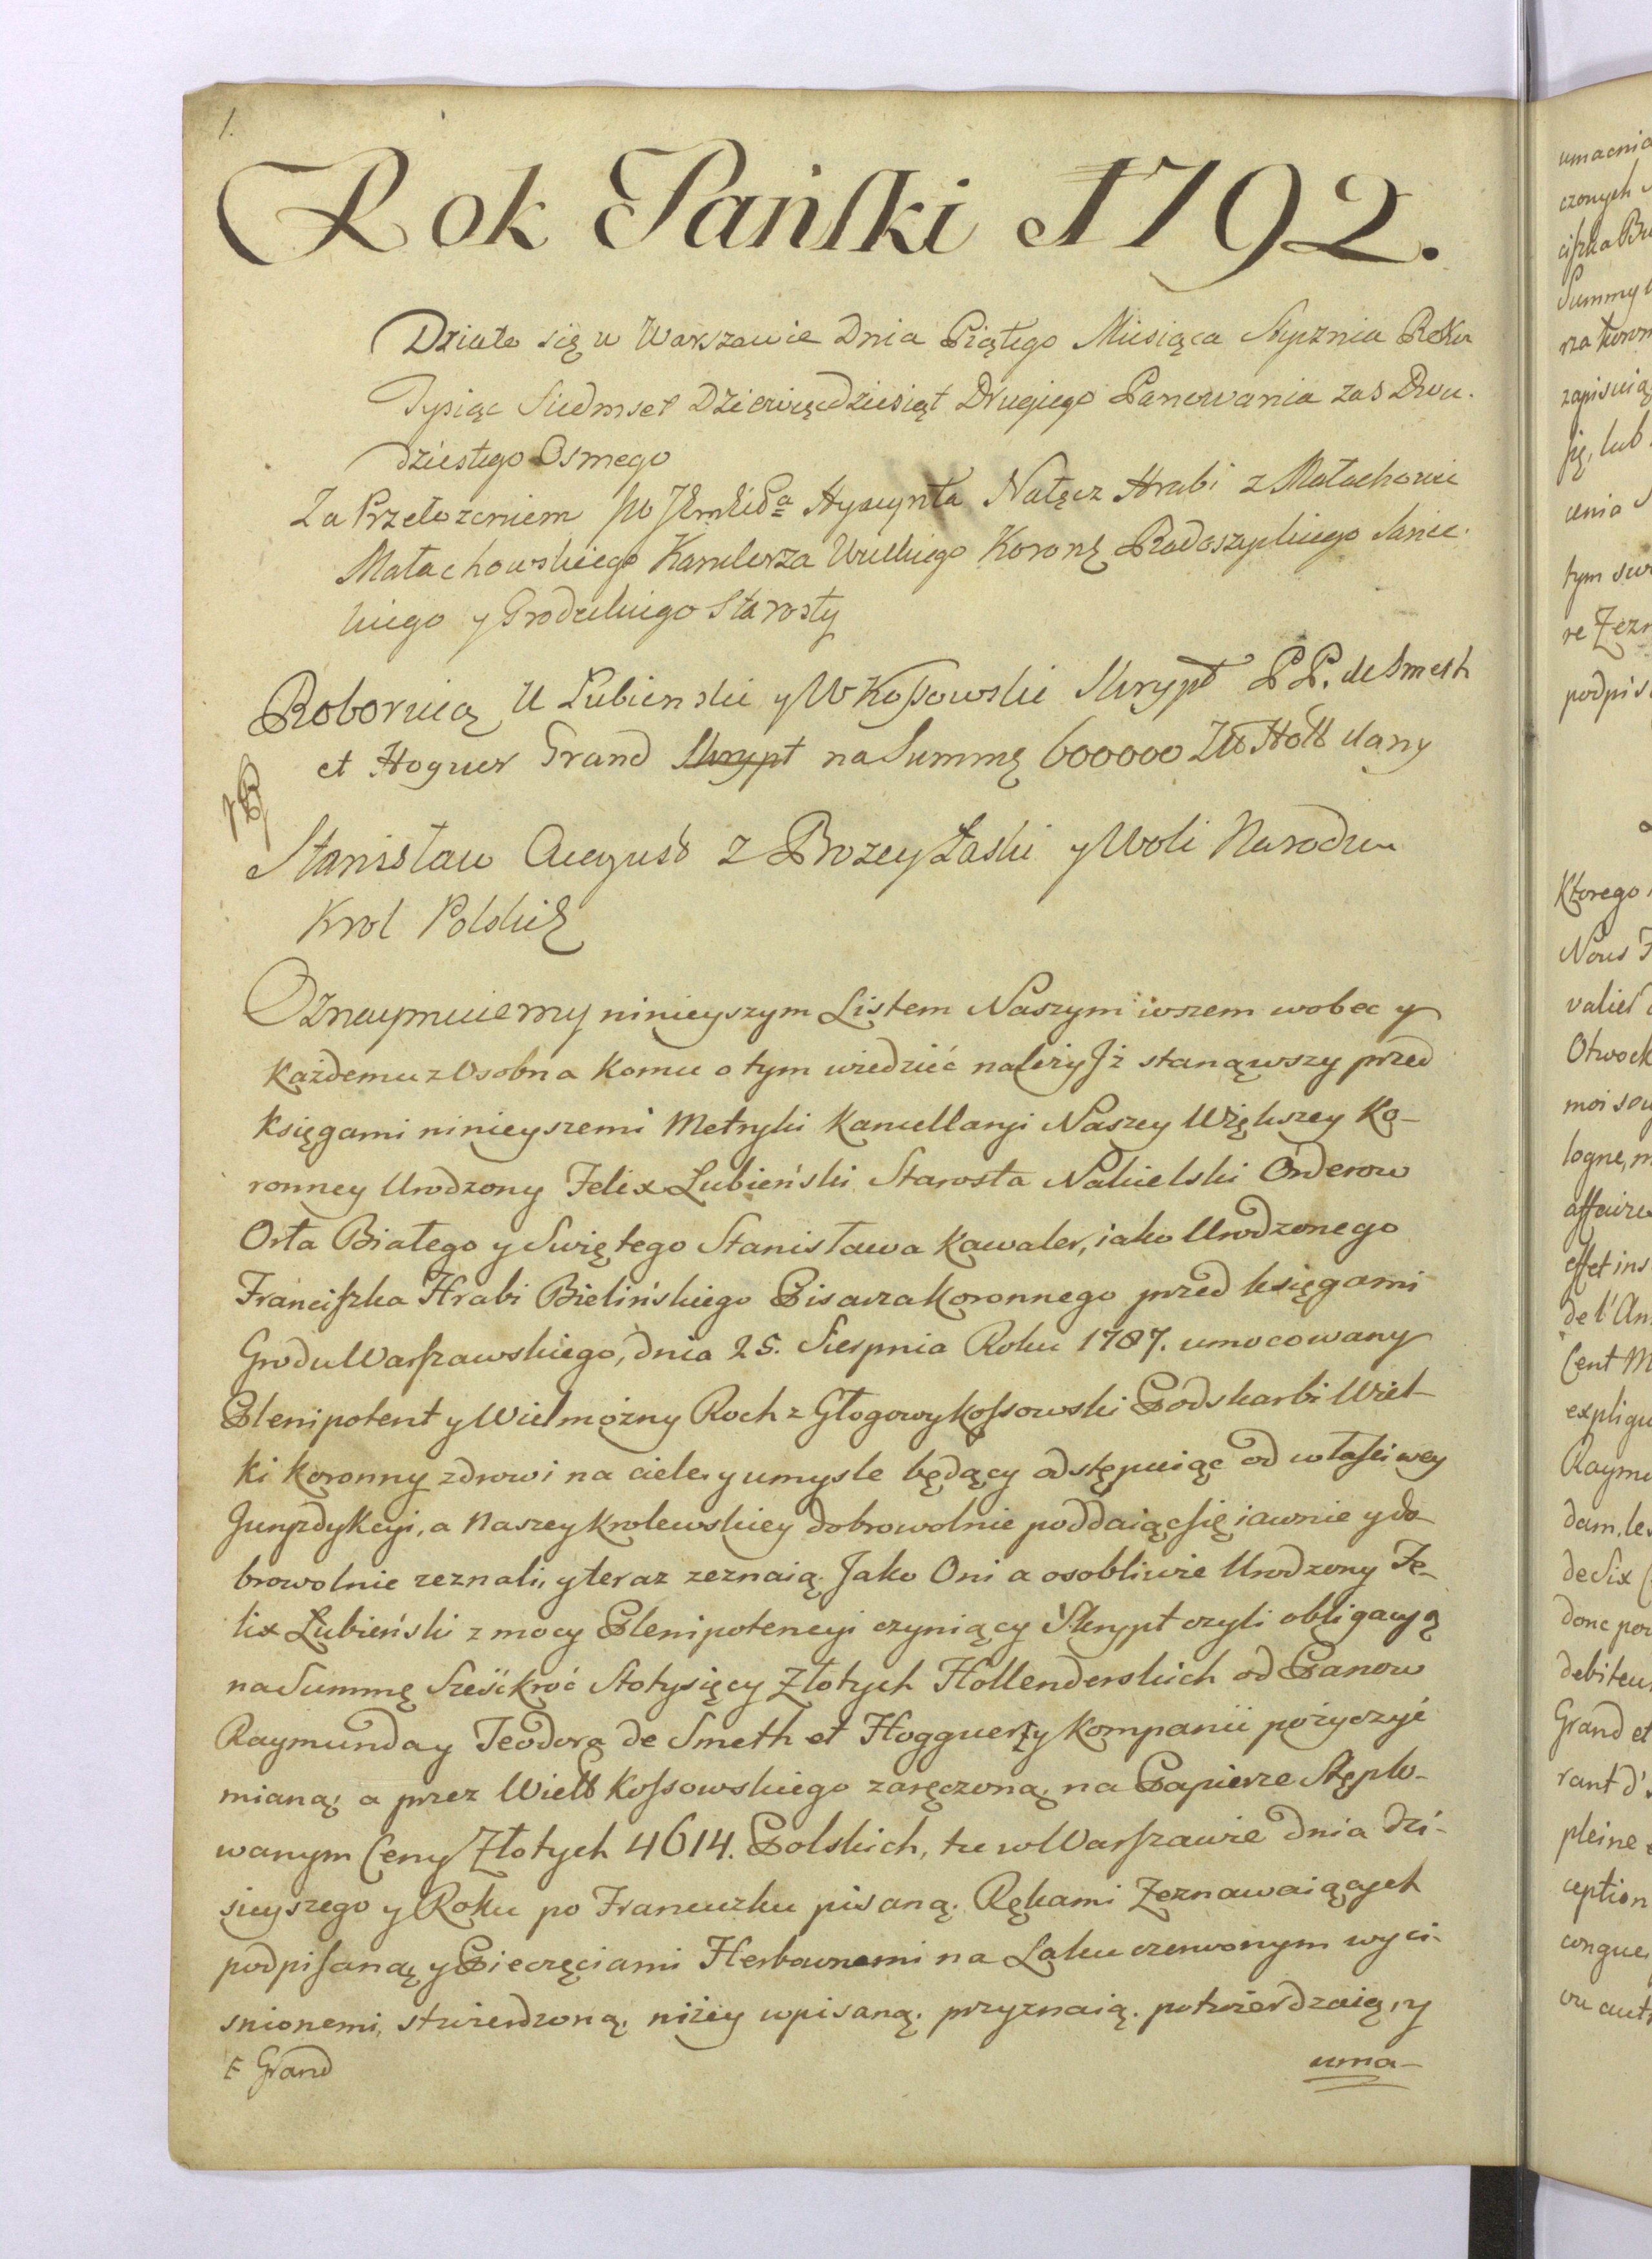 1.
Rok Pańſki 1792.
Działo się w Warszawie Dnia Piątego Miesiąca Stycznia Roku
Tysiąc Siedmset Dziewięcdziesiąt Drugiego Panowania zas Dwu-
dziestego Osmego
Za Przełozeniem Hyacynta Nałęcz Hrabi z Małachowic
Małachowskiego Kanclerza Wielkiego Koronę Radoszyckiego Sanec-
kiego y Grodeckiego Starosty
Roboruią U Lubienski y W Koſsowski Skrypt P P. de Smeth
et Hoguer Grand Skrypt na Summę 600000 Zł Holl dany
Stanisław August z Bozey Łaski y Woli Narodu
Krol Polski
Oznaymuiemy ninieyszym Listem Naszym iwszem wobec y
każdemu z Osobna komu o tym wiedzieć należy Iż stanąwszy przed
księgami ninieyszemi Metryki Kancellaryi Naszey Większey Ko-
ronney Urodzony Felix Lubieński Starosta Nakielski Orderow
Orła Białego y Swiętego Stanisława Kawaler, iako Urodzonego
Franciſzka Hrabi Bielińskiego Pisarza Koronnego przed księgami
Grodu Warſzawskiego, dnia 25. Sierpnia Roku 1787. umocowany
Plenipotent y Wielmożny Roch z Głogowy Koſsowski Podskarbi Wiel-
ki Koronny zdrowi na ciele y umysle będący odstępuiąc od właſciwey
Juryzdykcyi, a Naszey krolewskiey dobrowolnie poddaiąc ſię iawnie y do-
browolnie zeznali, y teraz zeznaią. Jako Oni a osobliwie Urodzony Fe-
lix Lubieński z mocy Plenipotencyi czyniący Skrypt czyli obligacyą
na Summę Sześćkroć Stotysięcy Złotych Hollenderskich od Panow
Raymunda y Teodora de Smeth et Hogguer ꝉ y Kompanii pożyczyć
mianą, a przez Wielł Koſsowskiego zaręczoną, na Papierze Stęplo-
wanym Ceny Złotych 4614. Polskich, tu w Warſzawie dnia dzi-
sieyszego y Roku po Francuzku pisaną. Rękami Zeznawaiących
podpiſaną y Pieczęciami Herbownemi na Laku czerwonym wyci-
snionemi, stwierdzoną, niżey wpisaną. przyznaią. potwierdzaią, y
ꝉ Grand
uma-
umacnia
czonych
ciſzka
Summy
na
zapisuią
ſię, lub
tym
re
podpis
Ktorego
Nous
valier
Otwock
moi
logne, m
affaires
effet ins
de l'An
Cent M
expliqu
Raymu
dam, le
de Six
donc
debiteu
Grand et
rant d'
pleine
ception